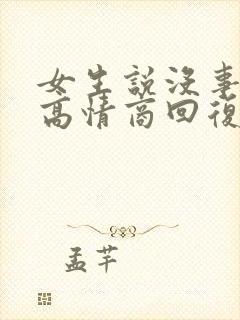 女生説沒事
高情商回復
孟芊